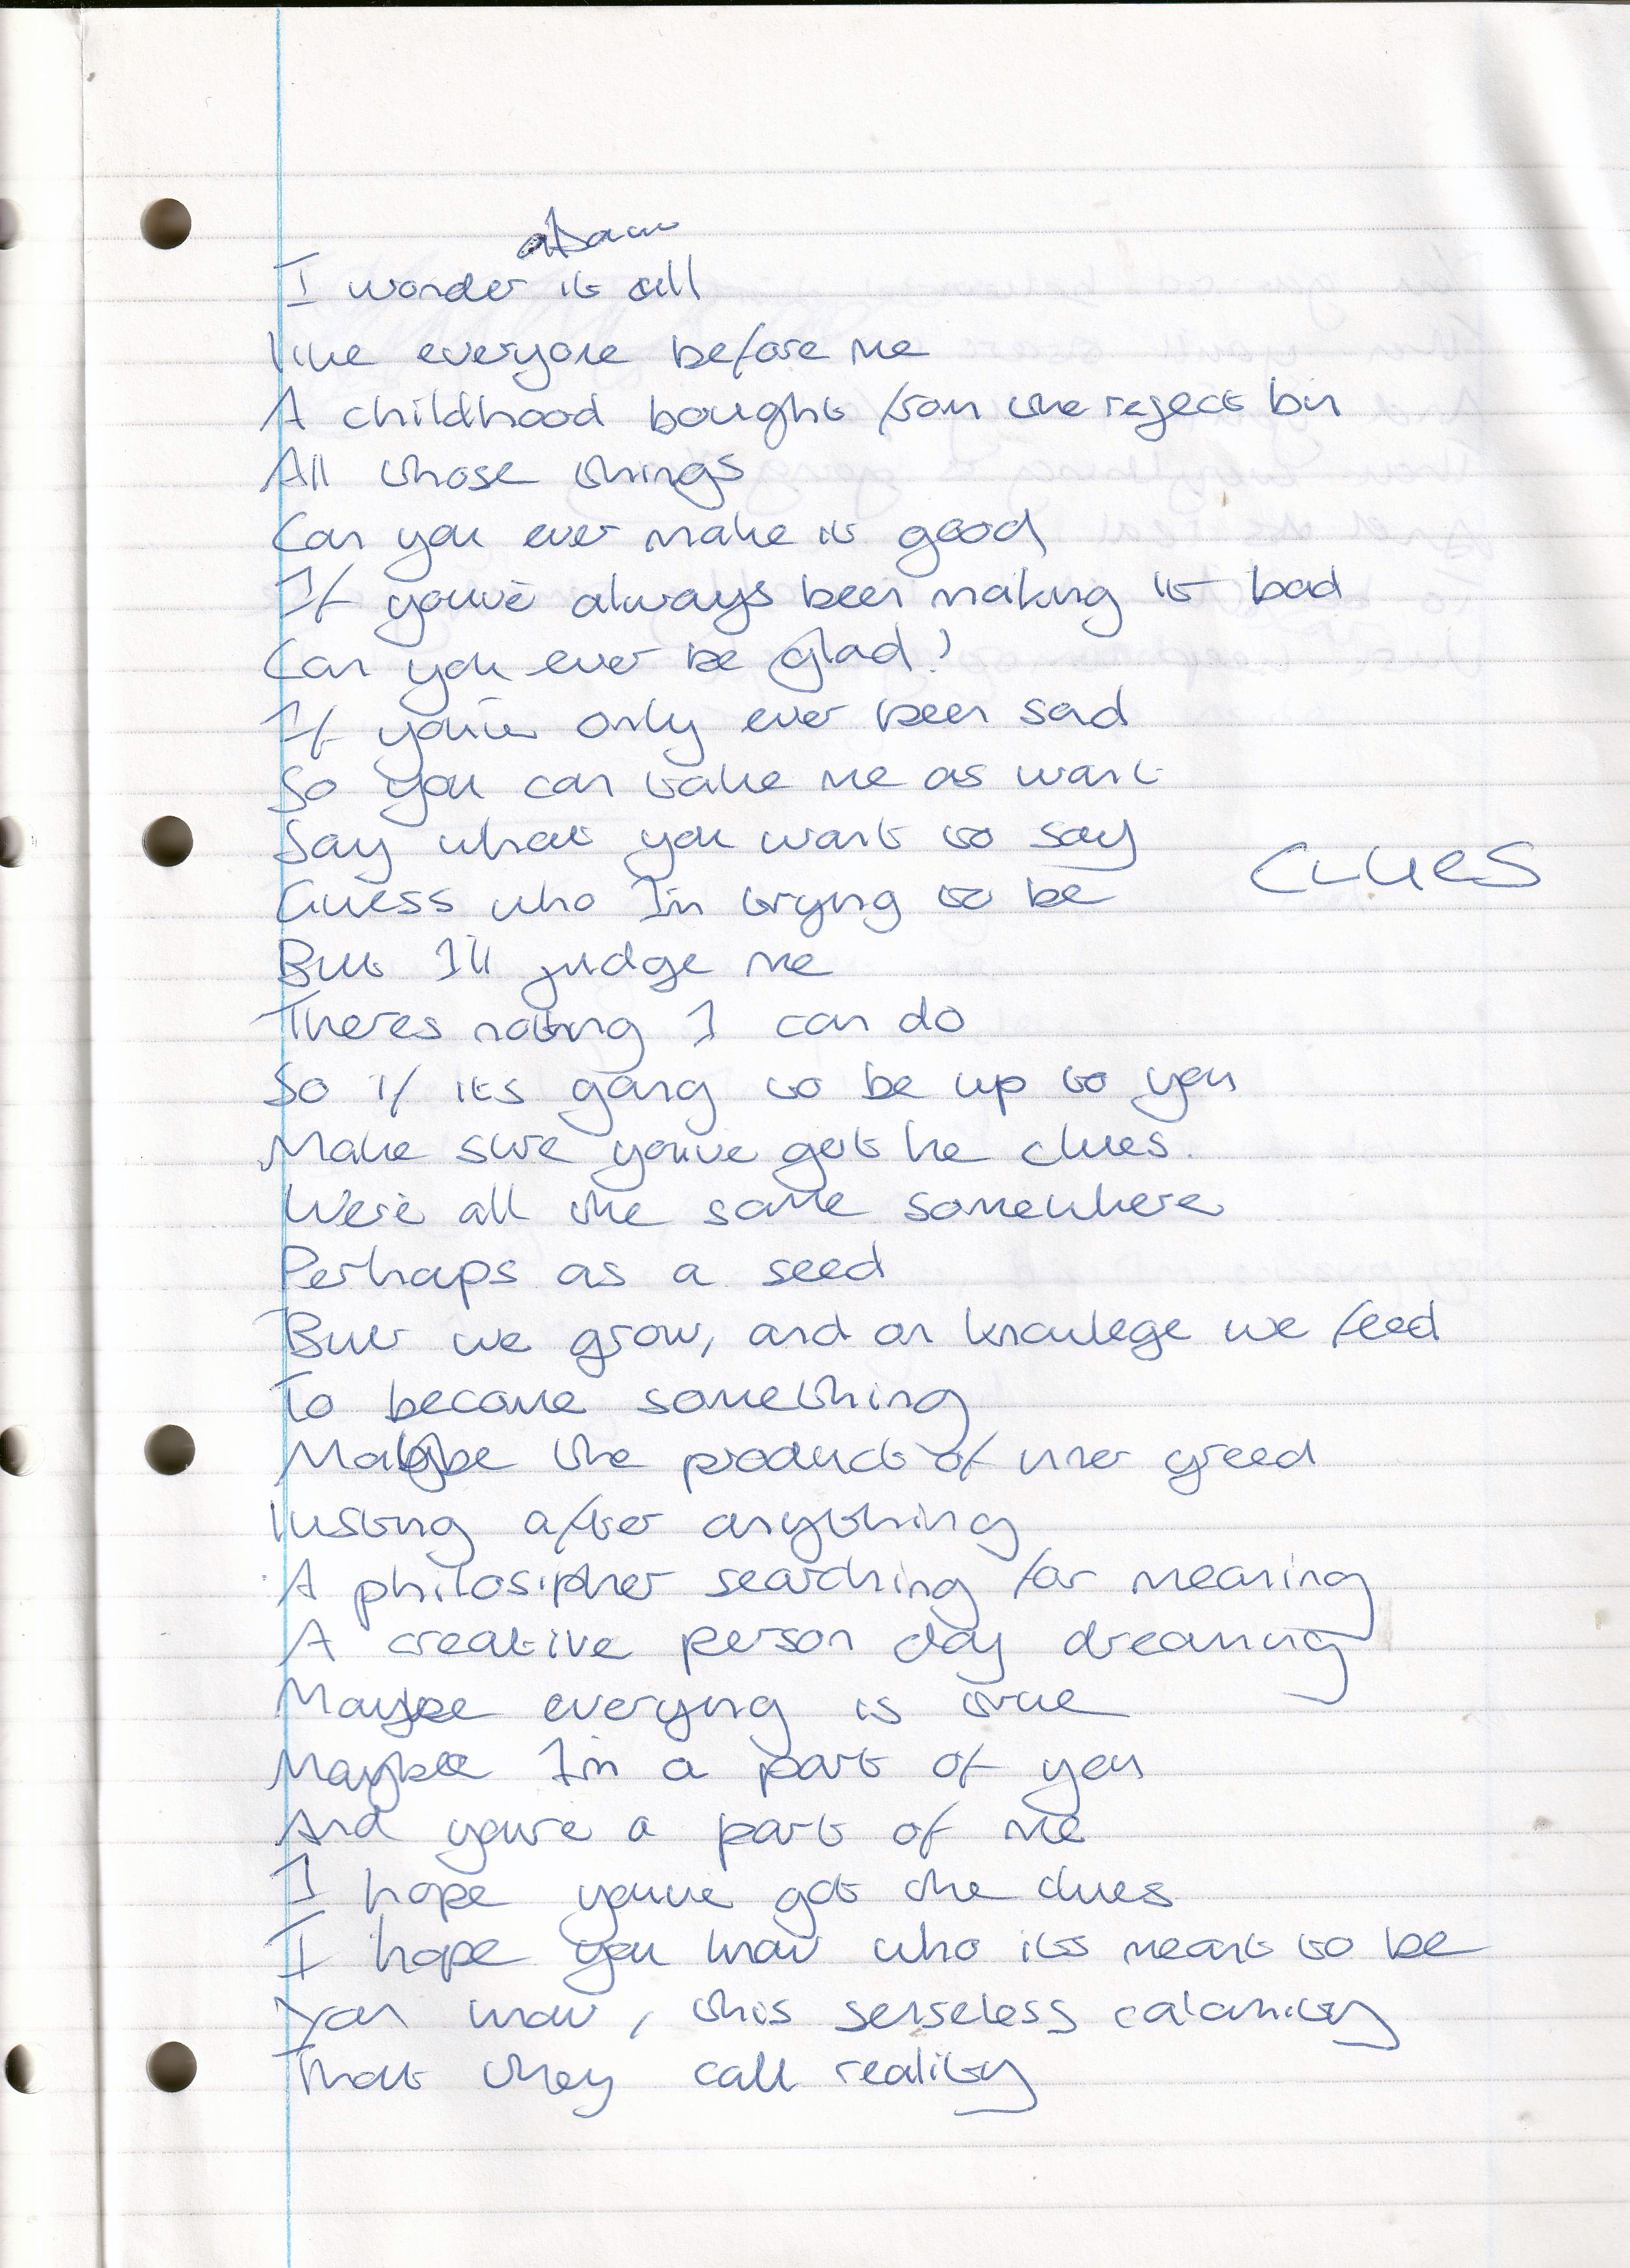 about
I wonder it all
like everyone before me
A childhood bought from the reject bin
All those things
Can you ever make it good
If you've always been making it bad
Can you ever be glad?
If you've only ever been sad
So you can take me as want
Say what you want to say
CLUES
Guess who I'm trying to be
But I'll judge me
Theres noting I can do
So if its going to be up to you
Make sure youve got he clues.
We're all the same somewhere
Perhaps as a seed
But we grow, and on knowlege we feed
To become something
Maybe the product of inner greed
lusting after anything
A philosipher searching for meaning
A creative person day dreaming
Maybe everying is true
Maybe I'm a part of you
And youre a part of me
I hope youve got the clues
I hope you know who its meant to be
You know, this senseless calamity
That they call reality